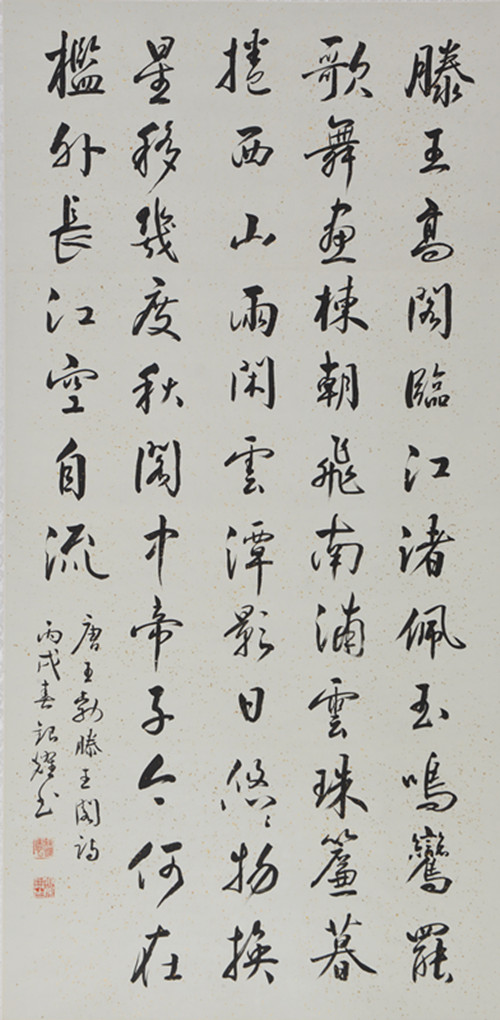 滕王高閣臨江渚佩玉鳴鸞罷
歌舞畫棟朝飛南浦雲珠簾暮
捲西山雨閑雲潭影日悠〻物換
星移幾度秋閣中帝子今何在
檻外長江空自流
唐王勃滕王閣詩
丙戌春耀书